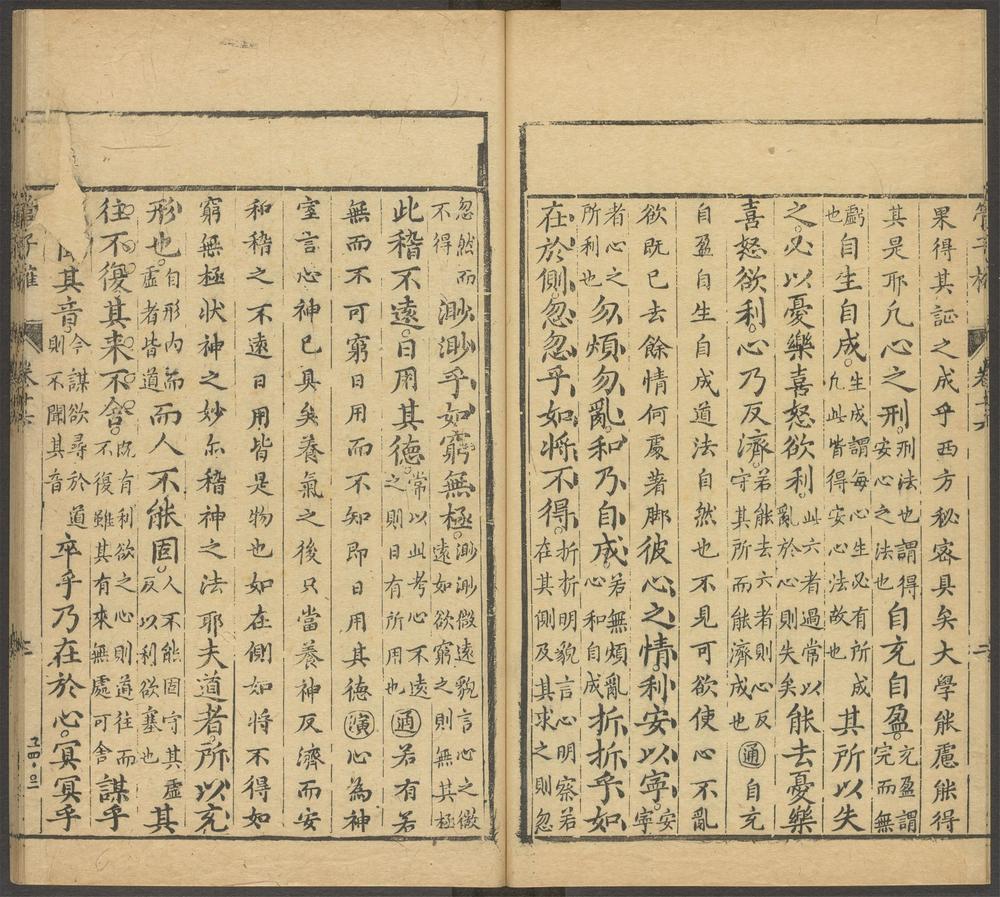 管子榷　卷十六　二
果得其証之成乎西方秘密具矣大學能慮能得
其是耶凡心之刑刑法也謂得安心之法也自充自盈充盈謂完而無
虧也自生自成生成謂每心生必有所成凡此皆得安心法故也其所以失
之必以憂樂喜怒欲利此六者過常以亂於心則失矣能去憂樂
喜怒欲利心乃反濟若能去六者則心反守其所而能濟成也通自充
自盈自生自成道法自然也不見可欲使心不亂
欲既已去餘情何處著脚彼心之情利安以寧安寧
者心之所利也勿煩勿亂和乃自成若無煩亂心和自成折折乎如
在於側忽忽乎如將不得折折明貌言心明察若在其側及其求之則忽
忽然而不得渺渺乎如窮無極渺渺微遠貌言心之微遠如欲窮之則無其極
此稽不遠日用其德常以此考心不遠之則日有所用也通若有若
無而不可窮日用而不知即日用其德演心為神
室言心神已具矣養氣之後只當養神反濟而安
和稽之不遠日用皆是物也如在側如將不得如
窮無極狀神之妙尓稽神之法耶夫道者所以充
形也自形內而虛者皆道而人不能固人不能固守其虛反以利欲塞也其
往不復其来不舍既有利欲之心則道往而不復雖其有來無處可舍謀乎
其音今謀欲尋於道則不聞其音卒乎乃在於心冥冥乎
管子榷　卷十六